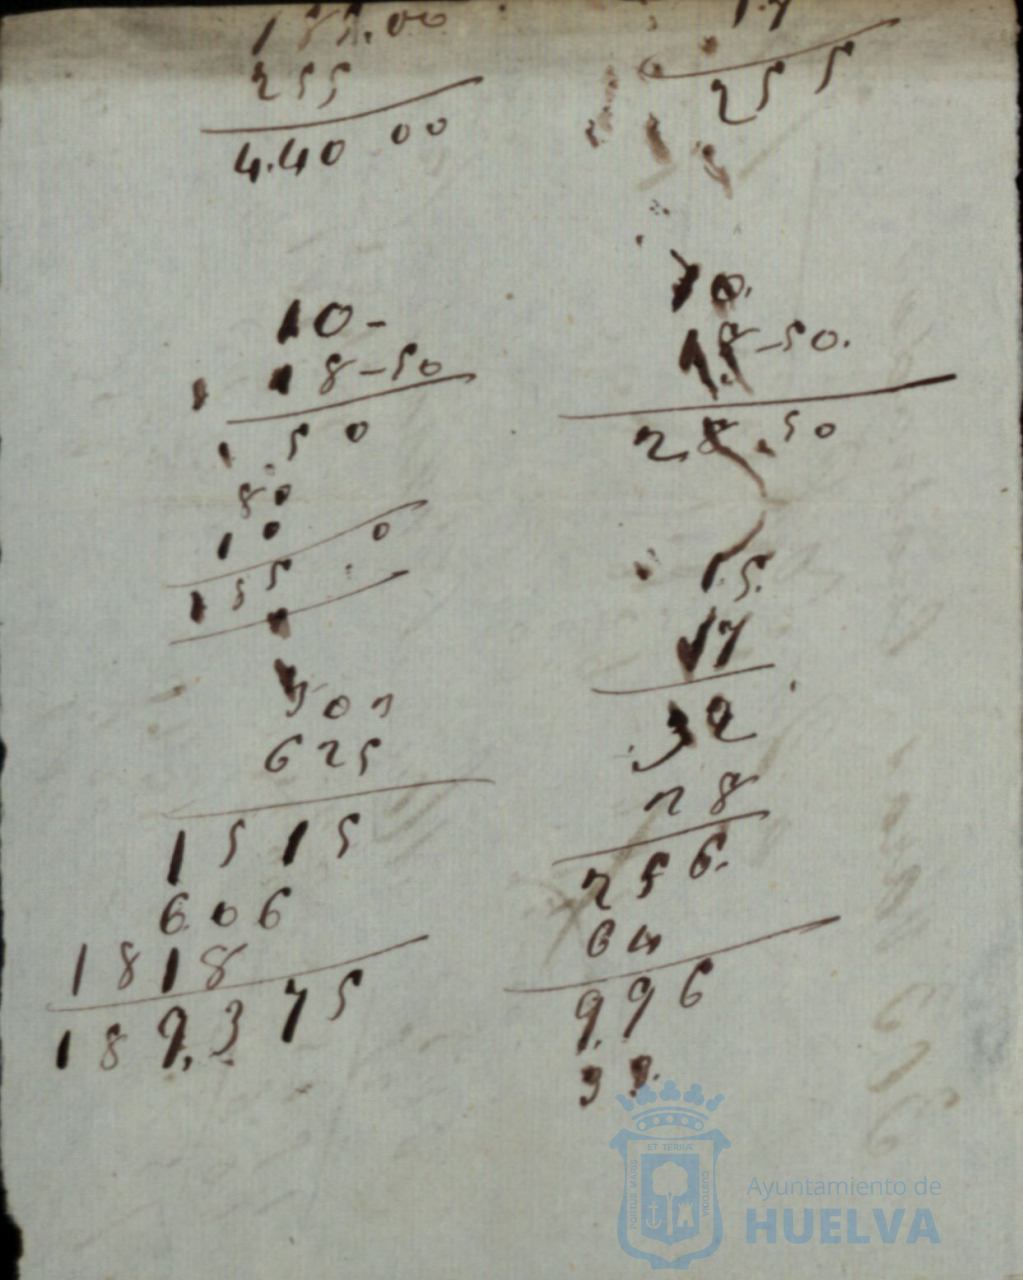 185.00
255
4.40 00
10-
18-50
1 50
80
10 0
155
303
625
1515
606
1818
189,375
17
255
10.
18-50.
28.50
15.
17
32
28
256.
64
9.96
33.
ET TERRAE
PORTUS MARIS
CUSTODIA
Ayuntamiento de
HUELVA